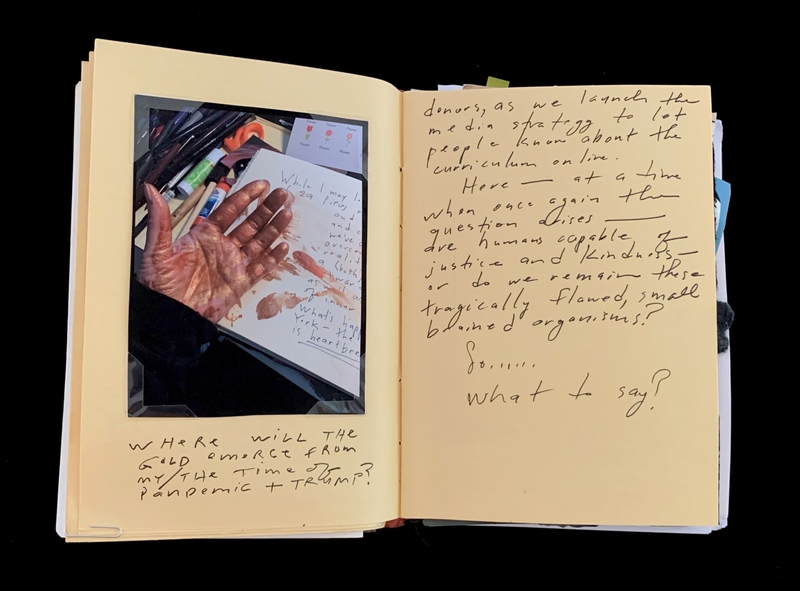 While I may
and
and
What's
York – the
is heartbre
WHERE WILL THE
GOLD emerge from
my/THE TIME OF
Pandemic + TRUMP?
donors, as we launch the
media strategy to let
people know about the
curriculum online.
Here — at a time
when once again the
question arises —
are humans capable of
justice and kindness —
or do we remain these
tragically flawed, small
brained organisms?
So......
what to say?